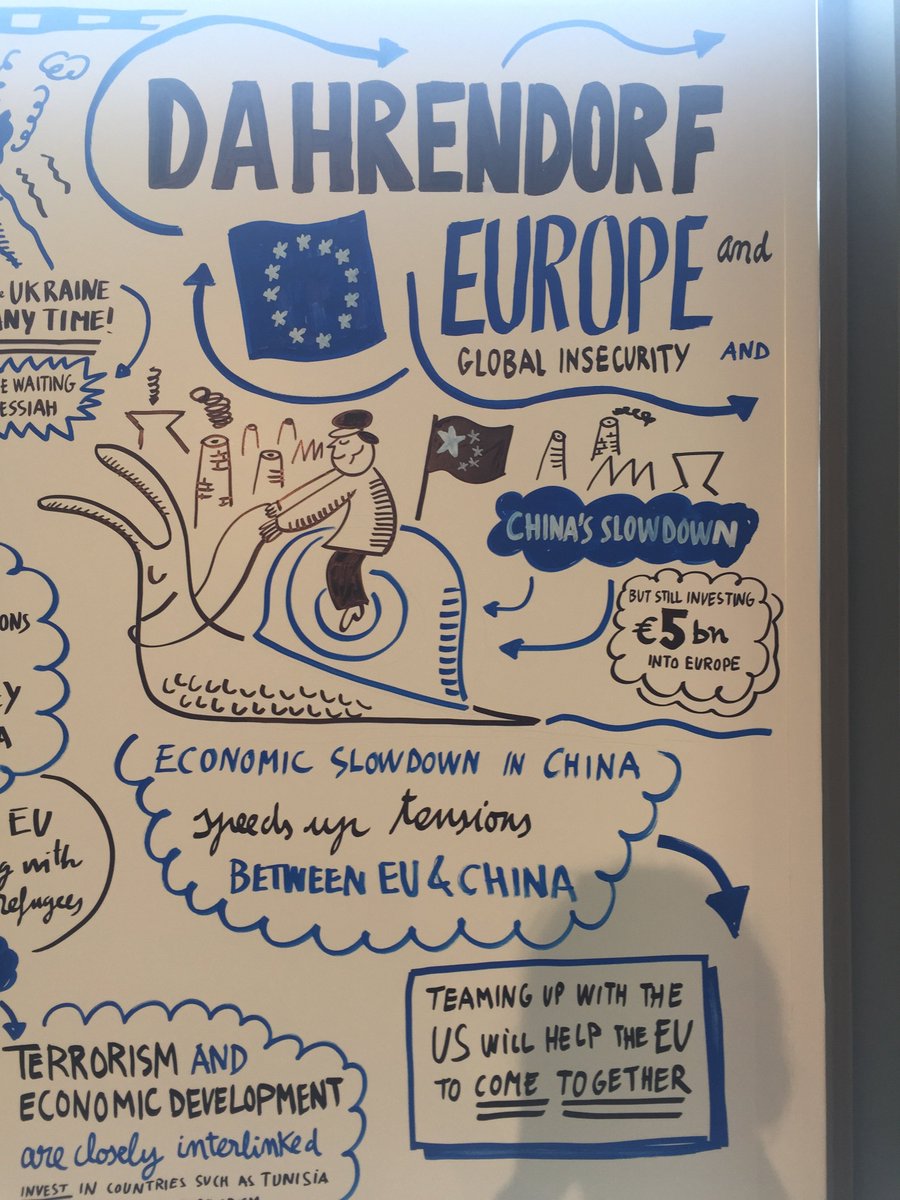 DAHRENDORF
EUROPE and
GLOBAL INSECURITY AND
UKRAINE
ANY TIME!
WAITING
CHINA'S SLOWDOWN
BUT STILL INVESTING
€5 bn
INTO EUROPE
ECONOMIC SLOWDOWN IN CHINA
speeds up tensions
BETWEEN EU & CHINA
EU
with
refugees
TEAMING UP WITH THE
US WILL HELP THE EU
TO COME TOGETHER
TERRORISM AND
ECONOMIC DEVELOPMENT
are closely interlinked
INVEST IN COUNTRIES SUCH AS TUNISIA